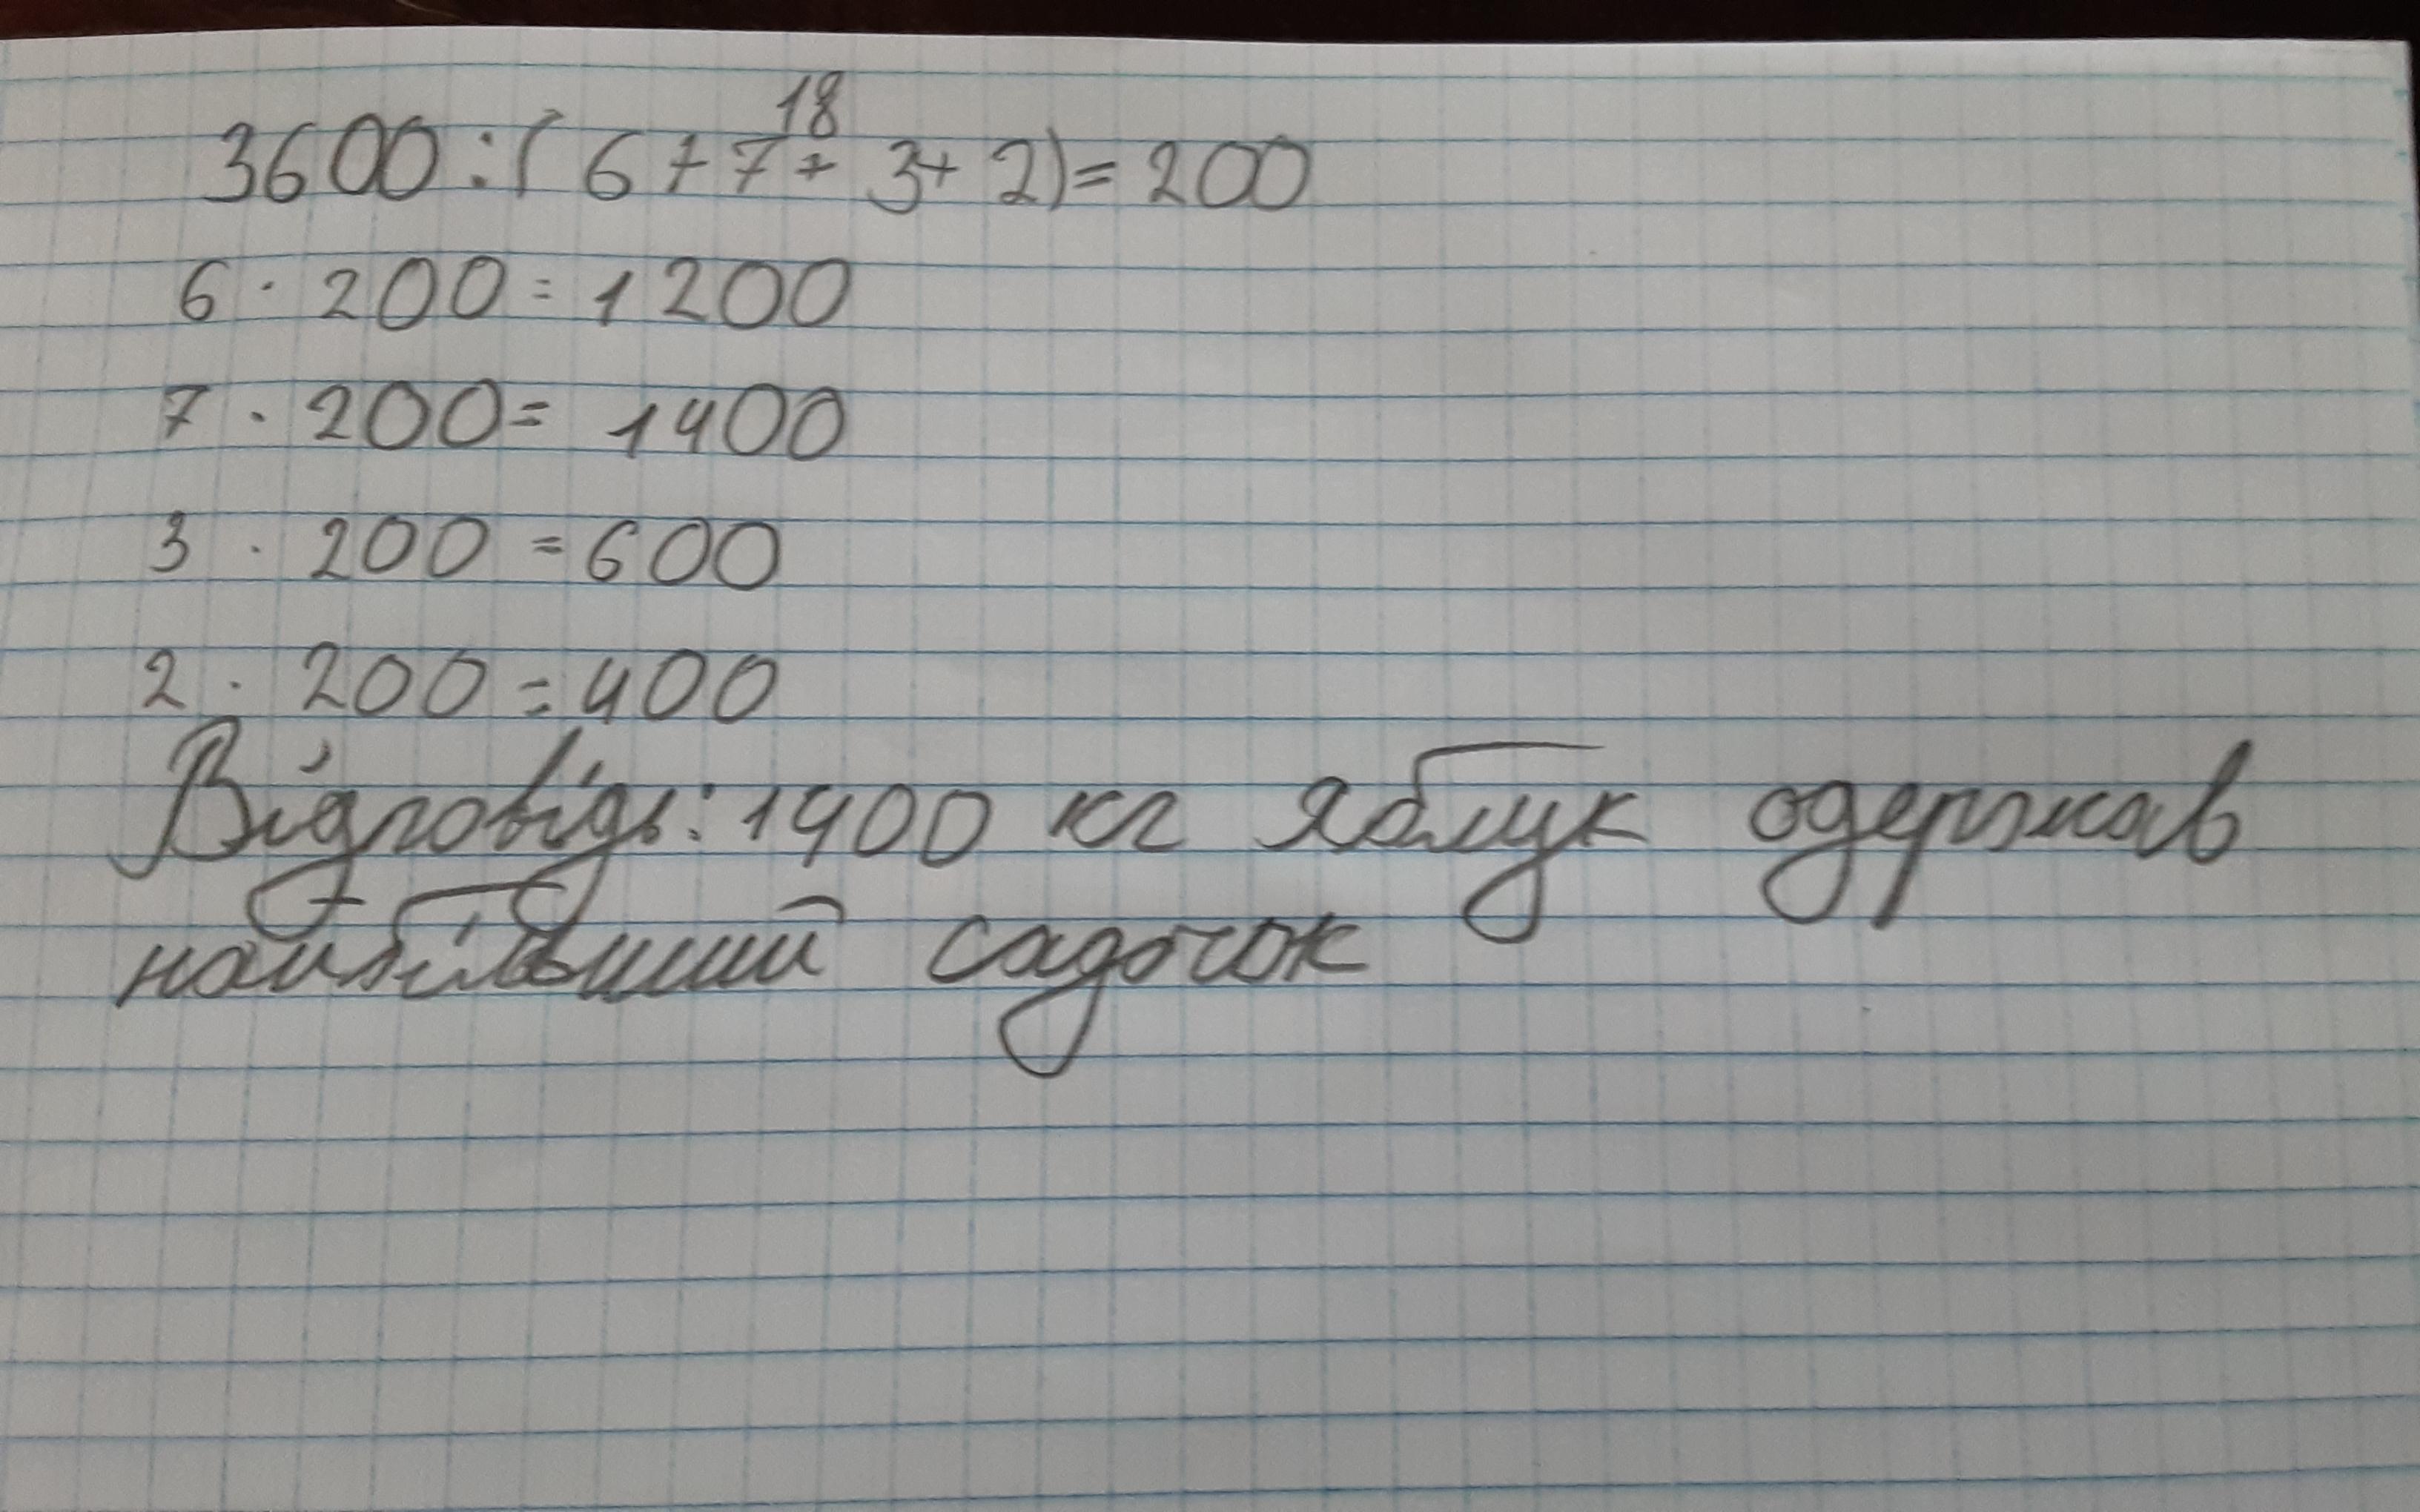 18
3600 : ( 6 + 7 + 3 + 2) = 200
6 · 200 = 1200
7 · 200 = 1400
3 · 200 = 600
2 · 200 = 400
Відповідь: 1400 кг яблук одержав
найбільший садочок